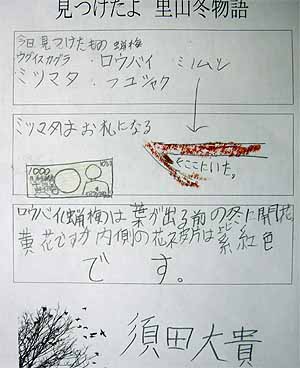 見つけたよ 里山冬物語
今日見つけたもの 蝋梅
ウグイスカグラ ・ロウバイ ミノムシ
ミツマタ ・フユシャク
ミツマタはお札になる
ここにいた。
1000
ロウバイ(蝋梅)は葉が出る前の冬に開花
黄花ですが内側の花びらは紫紅色
です。
須田大貴